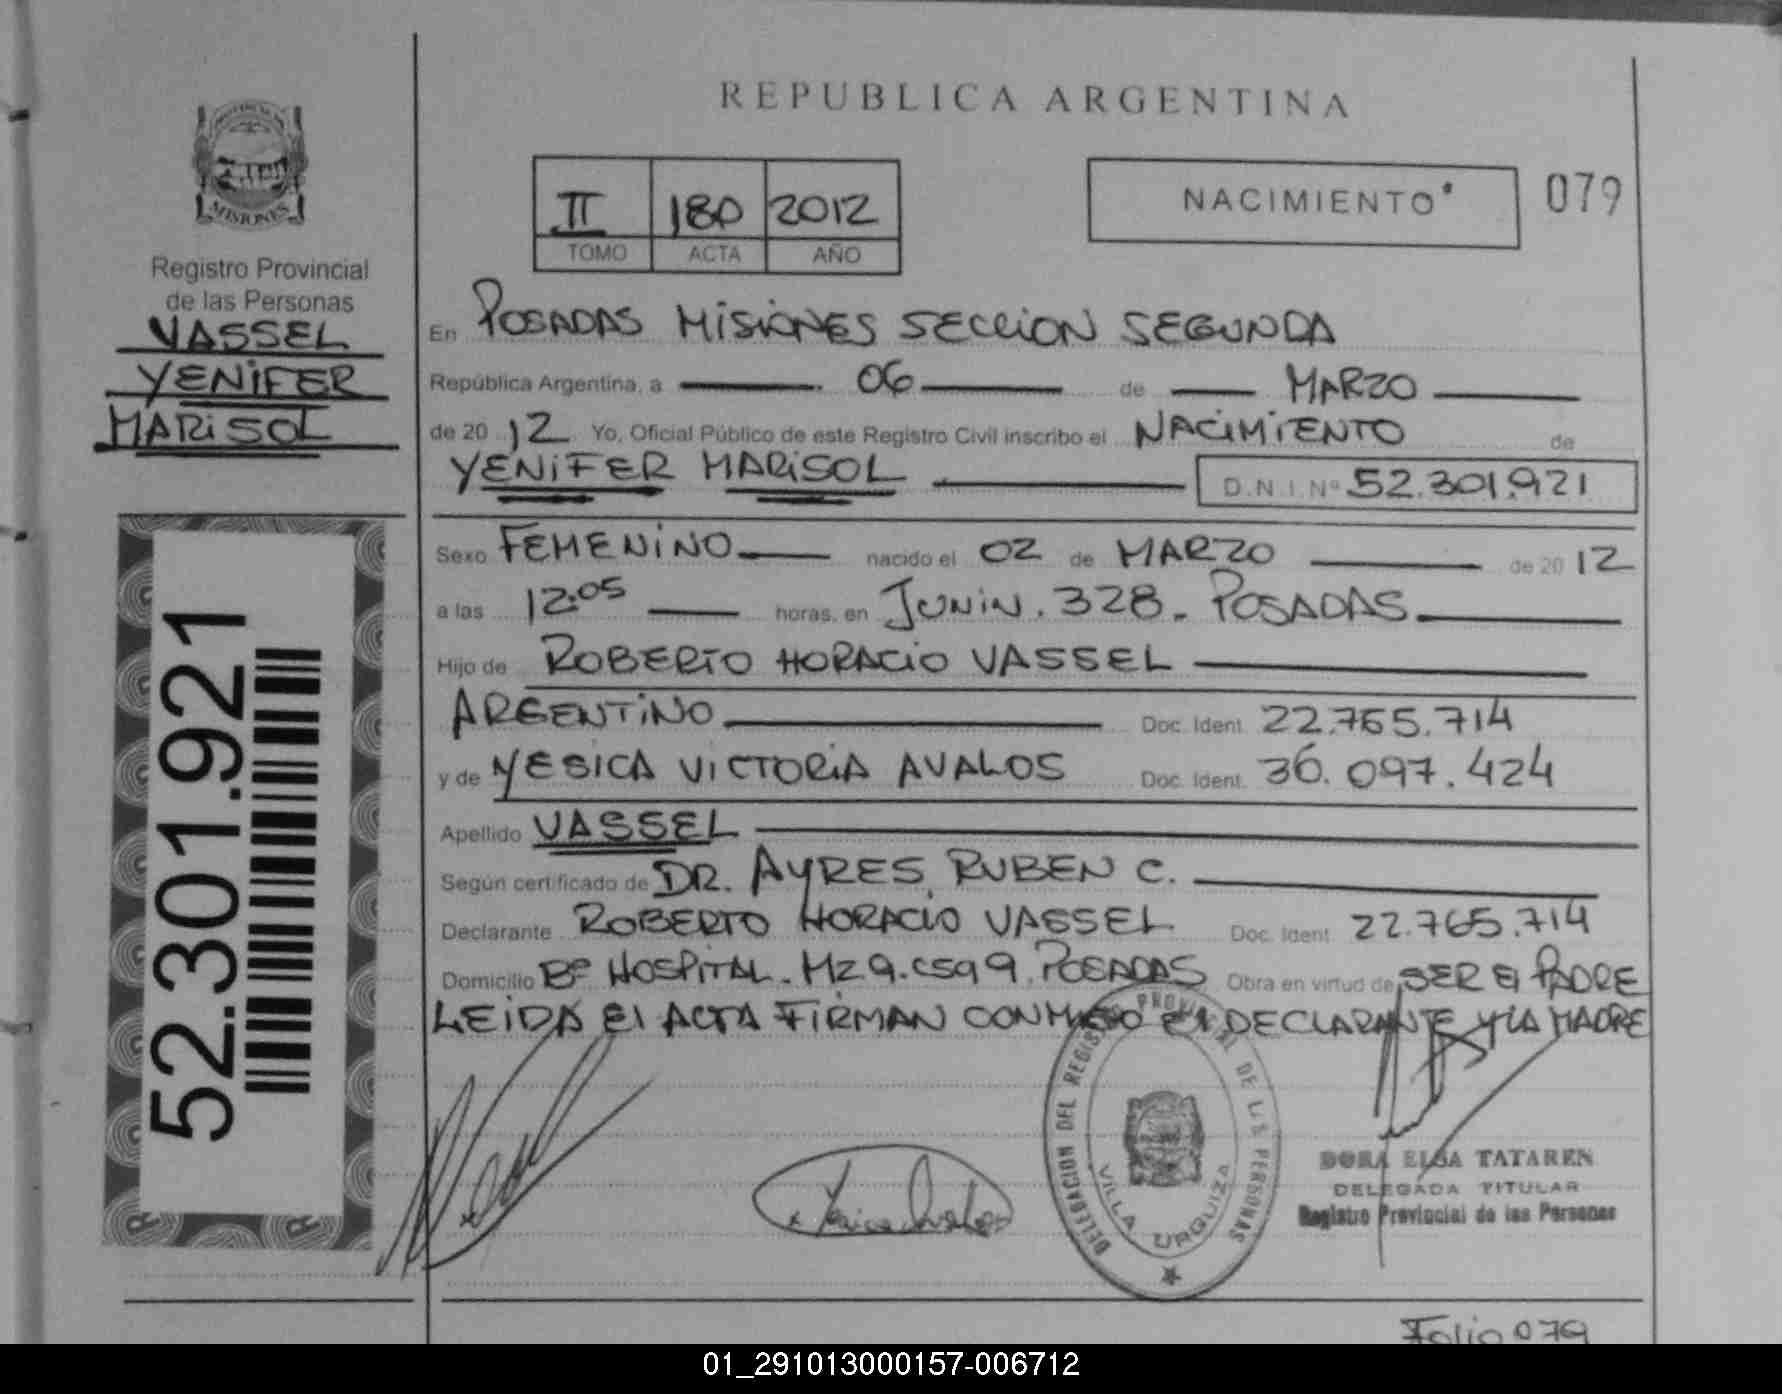 REPUBLICA ARGENTINA
MISIONES
Registro Provincial
de las Personas
VASSEL
YENIFER
MARISOL
II 180 2012
TOMO ACTA AÑO
NACIMIENTO
079
En POSADAS MISIONES SECCION SEGUNDA
República Argentina, a 06 de MARZO
de 2012 Yo, Oficial Público de este Registro Civil inscribo el NACIMIENTO de
YENIFER MARISOL D.N.I. Nº 52.301.921
Sexo FEMENINO nacido el 02 de MARZO de 2012
a las 12:05 horas, en JUNIN. 328. POSADAS
Hijo de ROBERTO HORACIO VASSEL
ARGENTINO Doc. Ident. 22.765.714
y de YESICA VICTORIA AVALOS Doc. Ident. 36.097.424
Apellido VASSEL
Según certificado de DR. AYRES, RUBEN C.
Declarante ROBERTO HORACIO VASSEL Doc. Ident. 22.765.714
Domicilio Bº HOSPITAL. MZ 9. CS 99. POSADAS Obra en virtud de SER El PADRE
LEIDA El ACTA FIRMAN CONMIGO El DECLARANTE Y LA MADRE
52.301.921
DELEGACION DEL REGISTRO PROVINCIAL DE LAS PERSONAS
VILLA URQUIZA
DORA ELSA TATAREN
DELEGADA TITULAR
Registro Provincial de las Personas
Folio 079
01_291013000157-006712